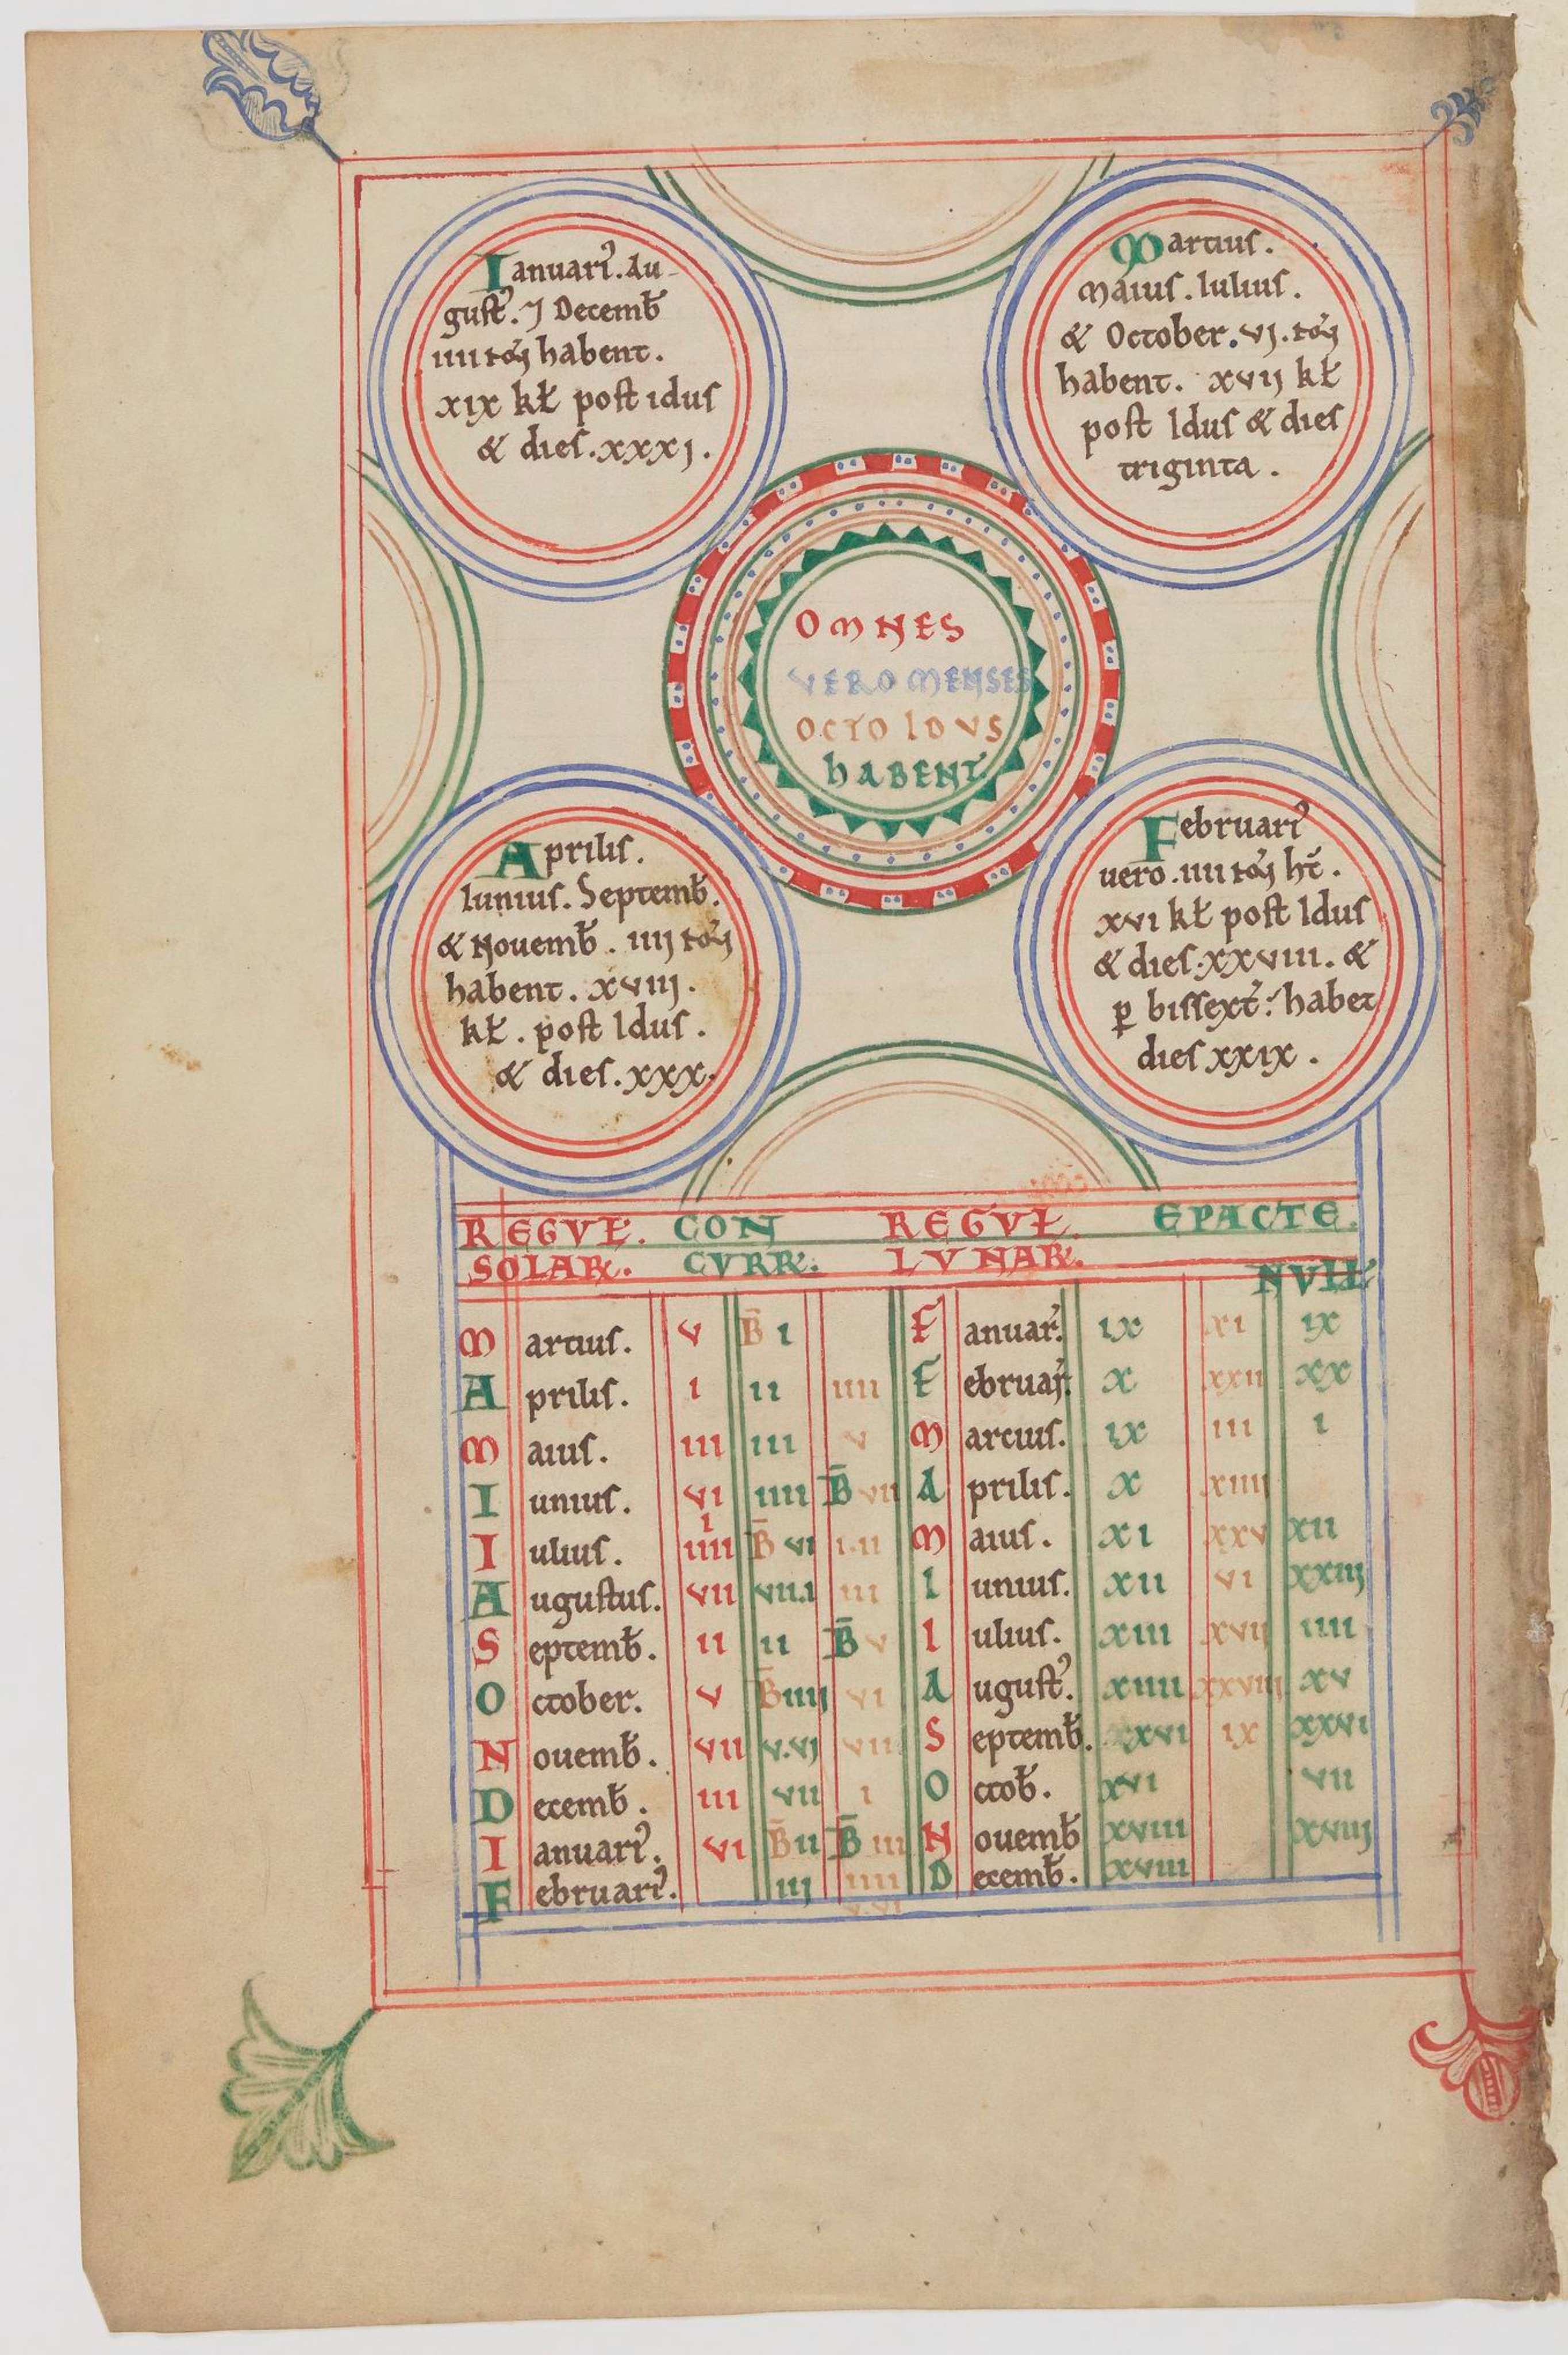 Ianuari᾽. Au-
gust᾽. ⁊ Decemb̄
iiii noꝫ habent.
xix kł post idus
& dies. xxxj.
Martius.
Maius. Iulius.
& October. vj. noꝫ
habent. xvij kł
post Idus & dies
triginta.
OMNES
VERO MENSES
OCTO IDVS
hABENT
Aprilis.
Iunius. Septemb̄.
& Nouemb̄. iiij noꝫ
habent. xviij.
kł. post Idus.
& dies. xxx.
Februari᾽
uero. iiii noꝫ ht̄.
xvi kł post Idus
& dies. xxviii. &
ꝑ bissext᾽. habet
dies xxix.
REGVŁ. CON REGVŁ. EPACTE.
SOLAR. CVRR. LVNAR. NVŁŁ
Martius. v B̄ i Eanuar᾽. ix xi ix
Aprilis. i ii iiii Februar᾽. x xxii xx
Maius. iii iii v Marcius. ix iii i
Iunius. vi iiii B̄ vii Aprilis. x xiiii
Iulius. iiii B̄ vi i.ii Maius. xi xxv xii
Augustus. vii vii.i iii Iunius. xii vi xxiij
Septemb̄. ii ii B̄ v Iulius. xiii xvii iiii
October. v B̄ iiij vi August᾽. xiiii xxviii xv
Nouemb̄. vii v.vj vii Septemb̄. xxvi ix xxvi
Decemb̄. iii vii i Octob̄. xvi vii
Ianuari᾽. vi B̄ ii B̄ iii Nouemb̄ xviii xviij
Februari᾽. iij iiii Decemb̄. xviii
v.vi